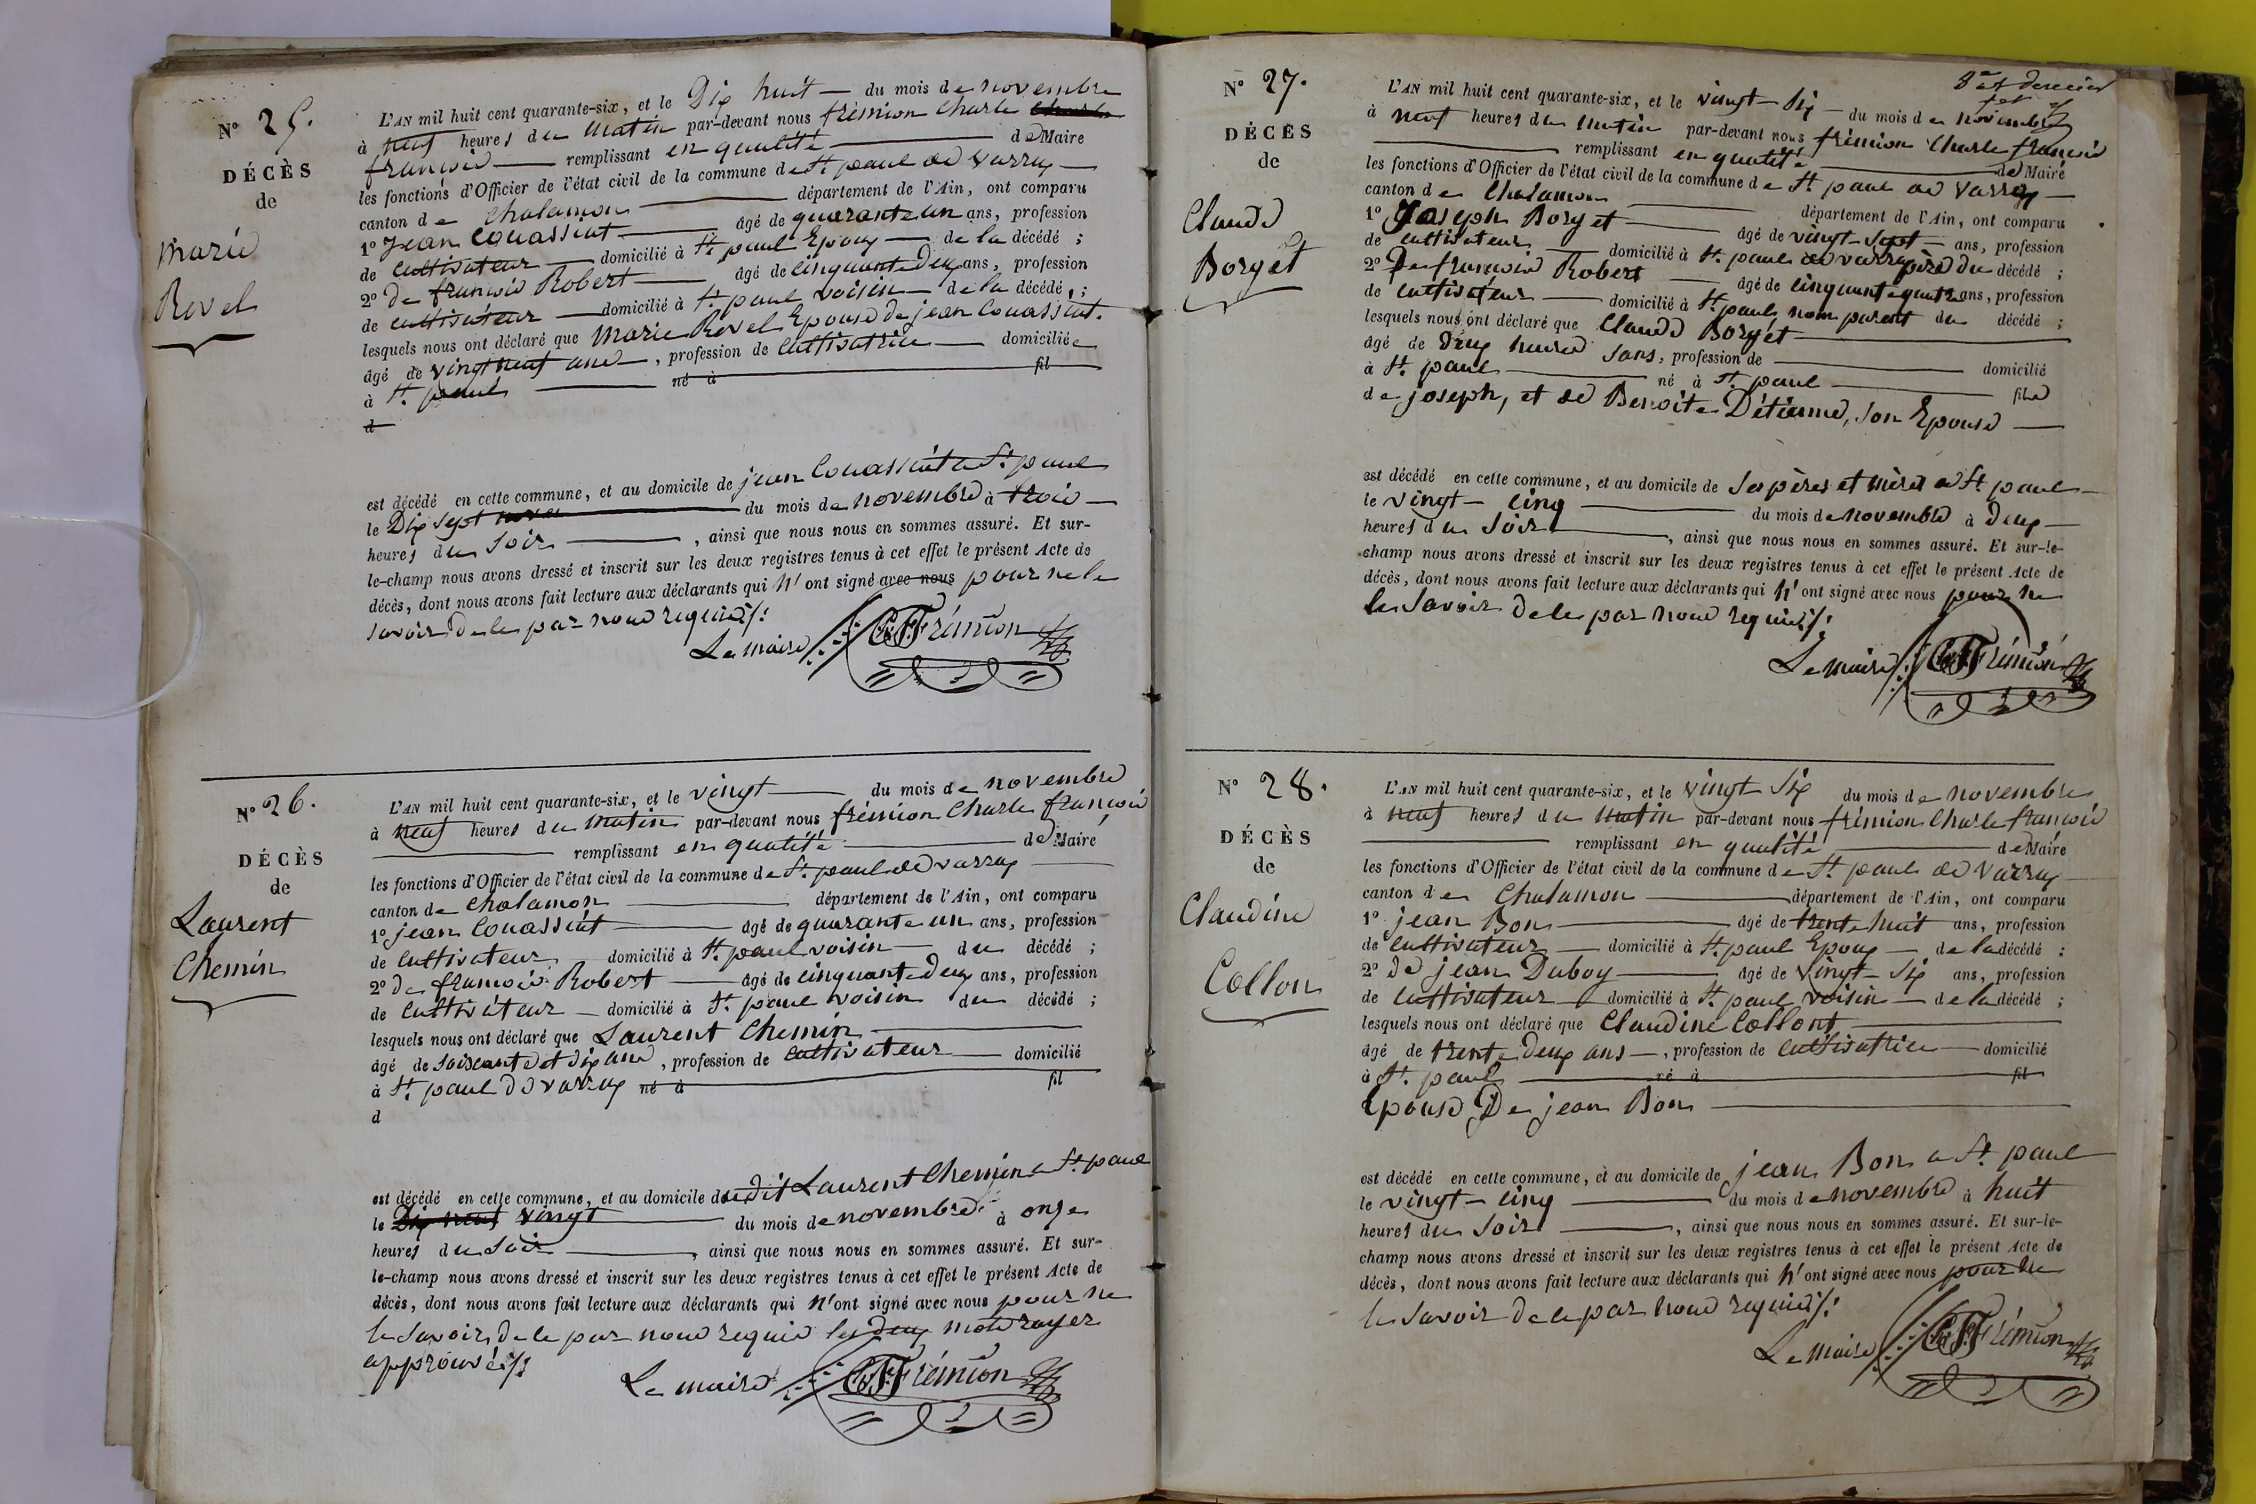 N° 25.
DÉCÈS
de
Marie
Revel
L'AN mil huit cent quarante-six, et le Dix huit — du mois de novembre
à neuf heures du matin par-devant nous frémion Charle Charle
francois — remplissant en qualité — de Maire
les fonctions d'Officier de l'état civil de la commune de St. paul de varray —
canton de Chalamon — département de l'Ain, ont comparu
1° Jean Couassiut — âgé de quarante un ans, profession
de cultivateur — domicilié à St. paul Epoux — de la décédé ;
2° De francois Robert — âgé de cinquante Deux ans, profession
de cultivateur — domicilié à St. paul voisin — de la décédé, ;
lesquels nous ont déclaré que Marie Revel Epouse De jean Couassint.
âgé de vingt neuf ans —, profession de cultivatrice — domiciliée
à St. paul — né à — fil
d
est décédé en cette commune, et au domicile de jean Couassint a St. paul
le Dix sept — du mois de novembre à trois —
heures du Soir —, ainsi que nous nous en sommes assuré. Et sur-
le-champ nous avons dressé et inscrit sur les deux registres tenus à cet effet le présent Acte de
décès, dont nous avons fait lecture aux déclarants qui n' ont signé avec nous pour ne le
savoir De le par nous requis/:
Le maire Ch. F. Frémion
N° 26.
DÉCÈS
de
Laurent
Chemin
L'AN mil huit cent quarante-six, et le vingt — du mois de novembre
à neuf heures du matin par-devant nous frémion Charle francois
— remplissant en qualité — de Maire
les fonctions d'Officier de l'état civil de la commune de St. paul de varray —
canton de Chalamon — département de l'Ain, ont comparu
1° jean Couassint — âgé de quarante un ans, profession
de cultivateur — domicilié à St. paul voisin — du décédé ;
2° De francois Robert — âgé de cinquante Deux ans, profession
de cultivateur — domicilié à St. paul voisin du décédé ;
lesquels nous ont déclaré que Laurent Chemin —
âgé de soixante et dix ans, profession de cultivateur — domicilié
à St. paul De varray né à — fil
d
est décédé en cette commune, et au domicile du dit Laurent Chemin a St. paul
le Dix neuf vingt — du mois de novembre à onze
heures du Soir —, ainsi que nous nous en sommes assuré. Et sur-
le-champ nous avons dressé et inscrit sur les deux registres tenus à cet effet le présent Acte de
décès, dont nous avons fait lecture aux déclarants qui n' ont signé avec nous pour ne
le savoir De le par nous requis les deux mots rayer
approuvé/:
Le maire Ch. F. Frémion
N° 27.
DÉCÈS
de
Claude
Borget
8e et dernier
L'AN mil huit cent quarante-six, et le vingt — Six — du mois de novembre
à neuf heures du matin par-devant nous frémion Charle francois
— remplissant en qualité — de Maire
les fonctions d'Officier de l'état civil de la commune de St. paul de varray —
canton de Chalamon — département de l'Ain, ont comparu
1° Joseph Borget — âgé de vingt-sept — ans, profession
de cultivateur — domicilié à St. paul de varray père du décédé ;
2° De francois Robert — âgé de cinquante quatre ans, profession
de cultivateur — domicilié à St. paul, nom parent du décédé ;
lesquels nous ont déclaré que Claude Borget —
âgé de Deux heures sans, profession de — domicilié
à St. paul — né à St. paul — fils
de joseph, et de Benoite Détienne, son Epouse —
est décédé en cette commune, et au domicile de Ses pères et mères a St. paul —
le vingt — cinq — du mois de novembre à deux —
heures du Soir —, ainsi que nous nous en sommes assuré. Et sur-le-
champ nous avons dressé et inscrit sur les deux registres tenus à cet effet le présent Acte de
décès, dont nous avons fait lecture aux déclarants qui n' ont signé avec nous pour ne
le savoir De le par nous requis/:
Le maire Ch. F. Frémion
N° 28.
DÉCÈS
de
Claudine
Collon
L'AN mil huit cent quarante-six, et le vingt Six du mois de novembre
à neuf heures du matin par-devant nous frémion Charle francois
— remplissant en qualité — de Maire
les fonctions d'Officier de l'état civil de la commune de St. paul de varray —
canton de Chalamon — département de l'Ain, ont comparu
1° jean Bon — âgé de trente huit ans, profession
de cultivateur — domicilié à St. paul Epoux — de la décédé ;
2° De jean Duboy — âgé de vingt-six ans, profession
de cultivateur — domicilié à St. paul voisin — de la décédé ;
lesquels nous ont déclaré que Claudine Collont —
âgé de trente deux ans —, profession de cultivatrice — domicilié
à St. paul — né à — fil
Epouse De jean Bon —
est décédé en cette commune, et au domicile de jean Bon a St. paul
le vingt — cinq — du mois de novembre à huit
heures du Soir —, ainsi que nous nous en sommes assuré. Et sur-le-
champ nous avons dressé et inscrit sur les deux registres tenus à cet effet le présent Acte de
décès, dont nous avons fait lecture aux déclarants qui n' ont signé avec nous pour ne
le savoir De le par nous requis/:
Le Maire Ch. F. Frémion